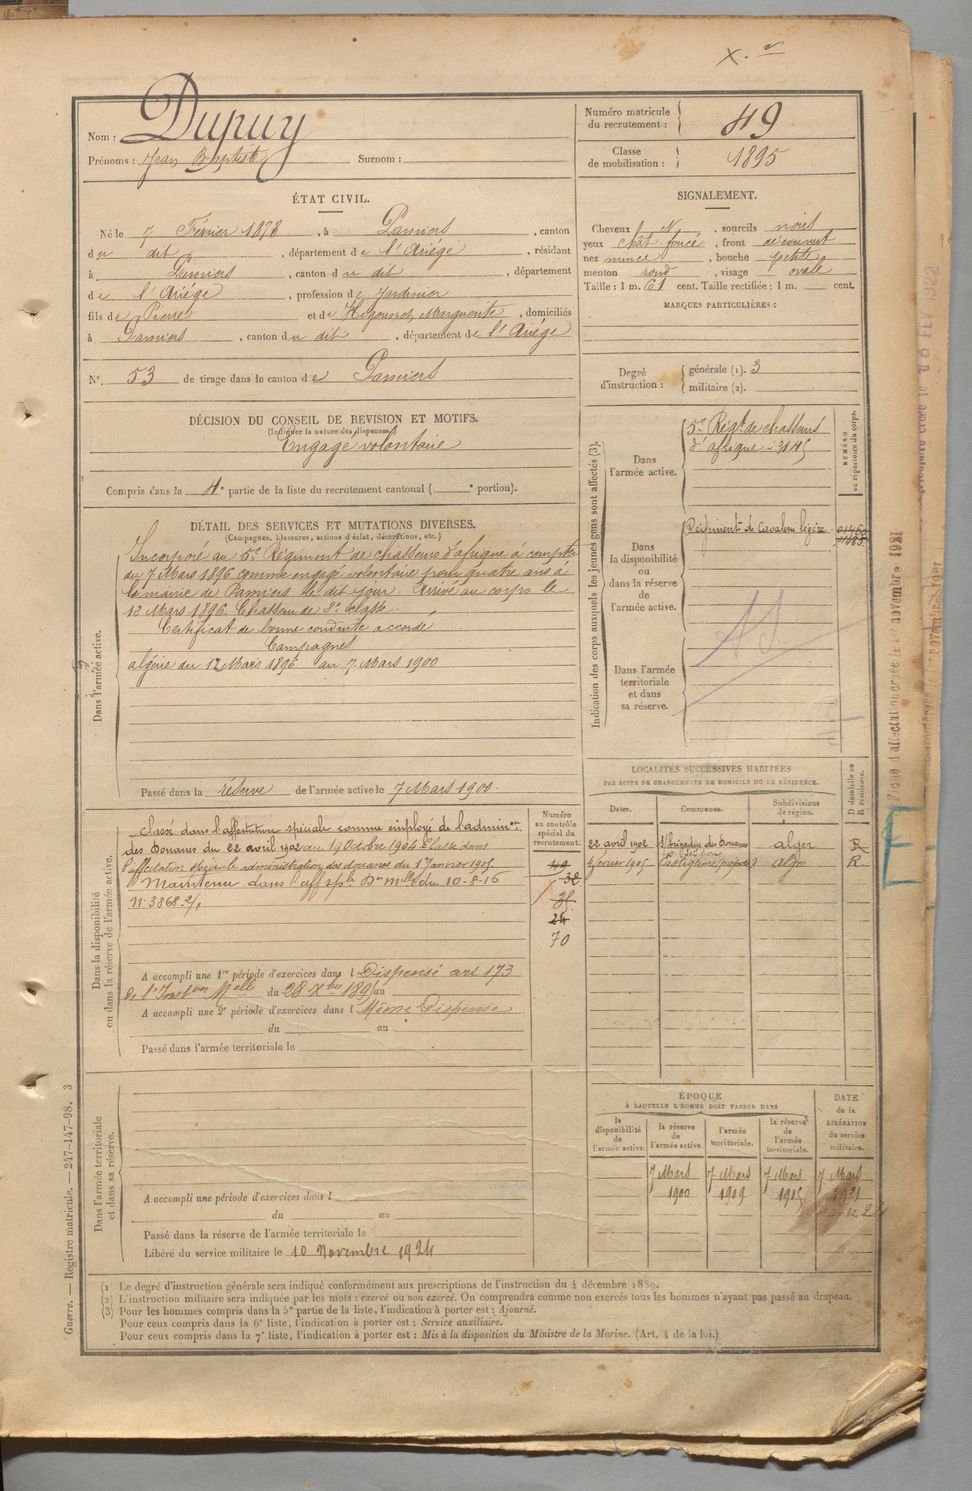 Nom : Dupuy
Prénoms : Jean Baptiste Surnom :
Numéro matricule
du recrutement : 49
Classe
de mobilisation : 1895
ÉTAT CIVIL.
Né le 7 Février 1878, à Pamiers, canton
du dit, département de l'Ariége, résidant
à Pamiers, canton du dit, département
de l'Ariége, profession de Jardinier
fils de Pierre et de Marguerite, domiciliés
à Pamiers, canton du dit, département de l'Ariége
N° 53 de tirage dans le canton de Pamiers
SIGNALEMENT.
Cheveux N, sourcils noirs
yeux chât. foncé, front découvert
nez mince, bouche petite
menton rond, visage ovale
Taille : 1 m. 61 cent. Taille rectifiée : 1 m. cent.
MARQUES PARTICULIÈRES :
Degré
d'instruction :
générale (1). 3
militaire (2).
DÉCISION DU CONSEIL DE REVISION ET MOTIFS.
(Indiquer la nature des dispenses.)
Engagé volontaire
Compris dans la 4e partie de la liste du recrutement cantonal ( e portion).
DÉTAIL DES SERVICES ET MUTATIONS DIVERSES.
(Campagnes, blessures, actions d'éclat, décorations, etc.)
Dans l'armée active.
Incorporé au 5e Régiment de chasseurs d'afrique à compter
du 7 Mars 1896 comme engagé volontaire pour quatre ans à
la mairie de Pamiers le dit jour. Arrivé au corps le
12 Mars 1896. Chasseur de 2e classe.
Certificat de bonne conduite accordé
Campagnes
algérie du 12 Mars 1896 au 7 Mars 1900
Passé dans la réserve de l'armée active le 7 Mars 1900.
Indication des corps auxquels les jeunes gens sont affectés (3).
NUMÉRO
au répertoire du corps.
Dans
l'armée active.
5e Régt de chasseurs
d'afrique - 3145
Dans
la disponibilité
ou
dans la réserve
de
l'armée active.
Régiment de Cavalerie légère
Dans l'armée
territoriale
et dans
sa réserve.
Dans la disponibilité
ou dans la réserve de l'armée active.
Numéro
au contrôle
spécial du
recrutement.
Classé dans l'affectation spéciale comme employé de l'admin.on
des Douanes du 22 avril 1902 au 19 Octobre 1904 Classé dans
l'affectation spéciale administration des douanes du 1er Janvier 1905
Maintenu dans aff sple Don mlle du 10-8-16
N° 3868 2/1
49
32
35
24
70
A accompli une 1re période d'exercices dans l Dispensé art 173
de l'Inston Mlle du 28 Xbre 1895 au
A accompli une 2e période d'exercices dans l Même Dispense
du au
Passé dans l'armée territoriale le
LOCALITÉS SUCCESSIVES HABITÉES
PAR SUITE DE CHANGEMENTS DE DOMICILE OU DE RÉSIDENCE.
Dates. Communes. Subdivisions
de région. D domicile ou
R résidence.
22 avril 1902 Brigadier des Douanes alger R
février 1905 Castiglione (préposé) alger R
ÉPOQUE
À LAQUELLE L'HOMME DOIT PASSER DANS
la
disponibilité
de
l'armée active.
la réserve
de
l'armée active.
l'armée
territoriale.
la réserve
de
l'armée
territoriale.
DATE
de la
LIBÉRATION
du service
militaire.
7 Mars 7 Mars 7 Mars 7 Mars
1900 1909 1915 1921
Dans l'armée territoriale
et dans sa réserve.
A accompli une période d'exercices dans l
du au
Passé dans la réserve de l'armée territoriale le
Libéré du service militaire le 10 Novembre 1924
(1) Le degré d'instruction générale sera indiqué conformément aux prescriptions de l'instruction du 4 décembre 1889.
(2) L'instruction militaire sera indiquée par les mots : exercé ou non exercé. On comprendra comme non exercés tous les hommes n'ayant pas passé au drapeau.
(3) Pour les hommes compris dans la 5e partie de la liste, l'indication à porter est : Ajourné.
Pour ceux compris dans la 6e liste, l'indication à porter est : Service auxiliaire.
Pour ceux compris dans la 7e liste, l'indication à porter est : Mis à la disposition du Ministre de la Marine. (Art. 4 de la loi.)
Guerre. — Registre matricule. — 247-147-98. 3
Fiche d'affectation créée le 1er novembre 1921